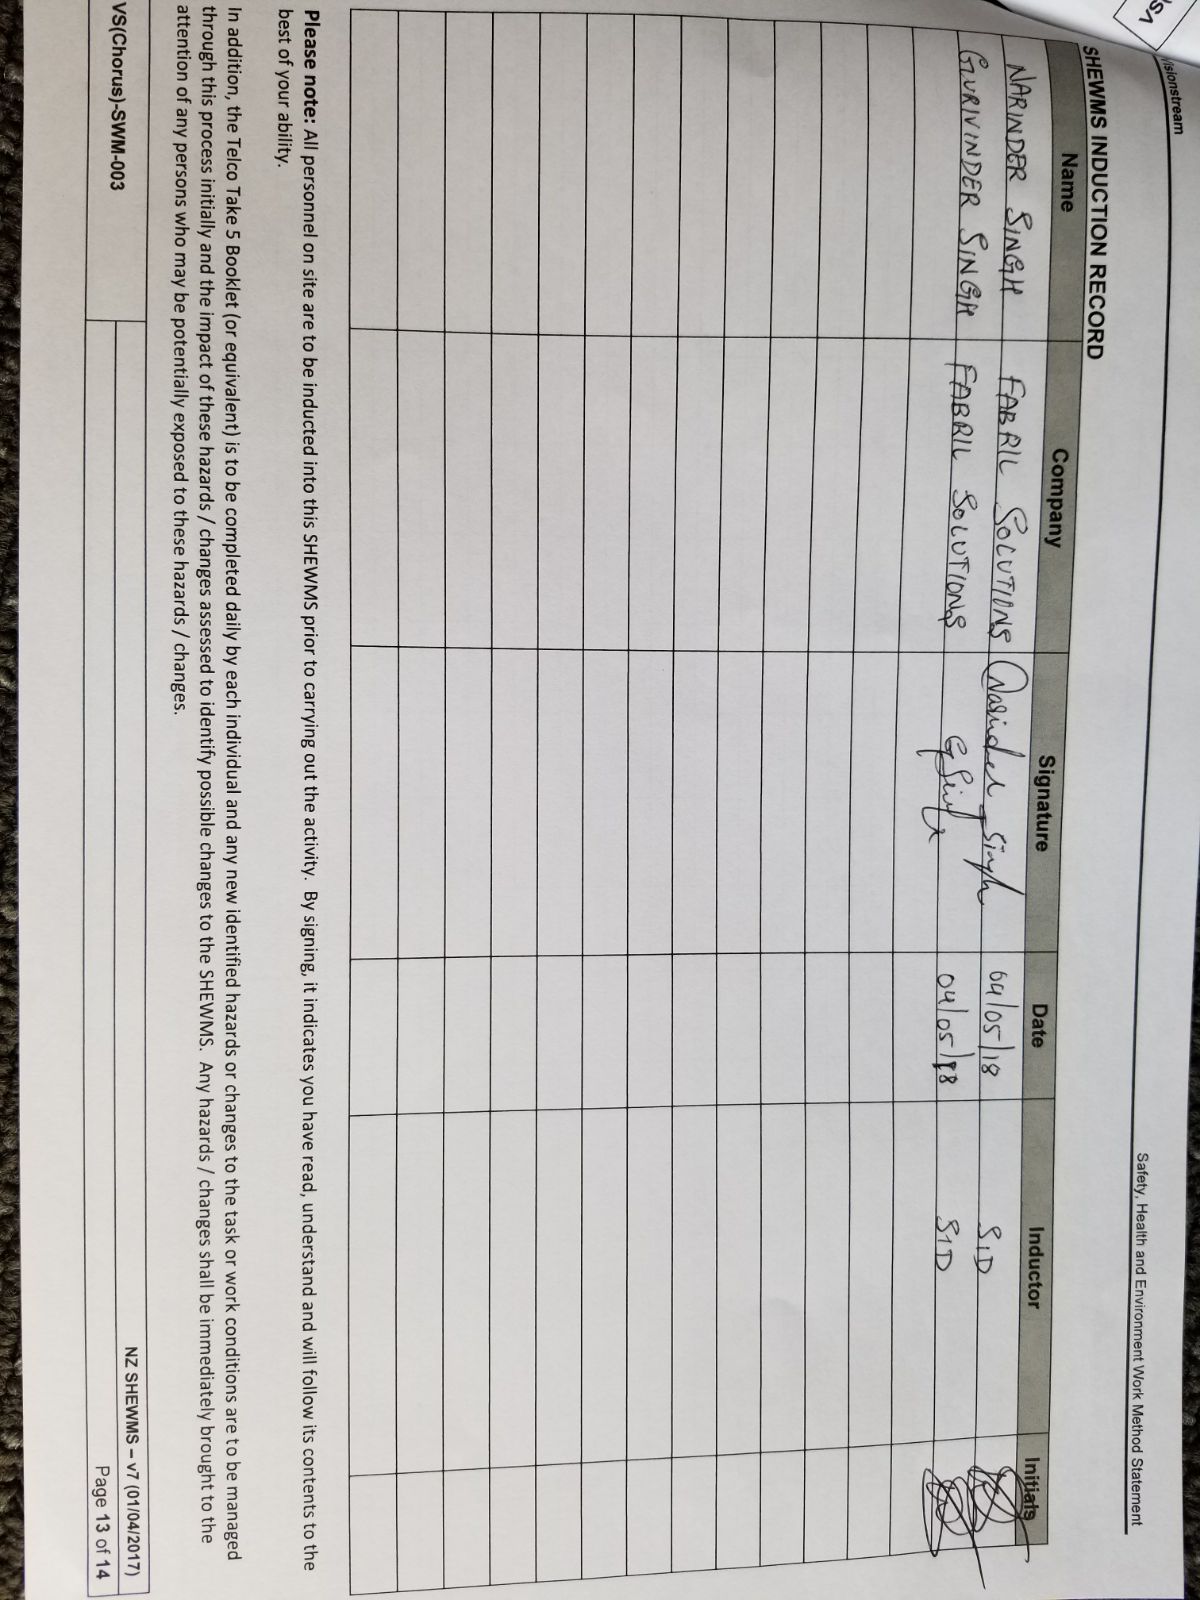 Visionstream
Safety, Health and Environment Work Method Statement
SHEWMS INDUCTION RECORD
Name Company Signature Date Inductor Initials
NARINDER SINGH FABRIL SOLUTIONS Narinder Singh 04/05/18 SID
GURIVINDER SINGH FABRIL SOLUTIONS G Singh 04/05/18 SID
Please note: All personnel on site are to be inducted into this SHEWMS prior to carrying out the activity. By signing, it indicates you have read, understand and will follow its contents to the
best of your ability.
In addition, the Telco Take 5 Booklet (or equivalent) is to be completed daily by each individual and any new identified hazards or changes to the task or work conditions are to be managed
through this process initially and the impact of these hazards / changes assessed to identify possible changes to the SHEWMS. Any hazards / changes shall be immediately brought to the
attention of any persons who may be potentially exposed to these hazards / changes.
VS(Chorus)-SWM-003
NZ SHEWMS – v7 (01/04/2017)
Page 13 of 14